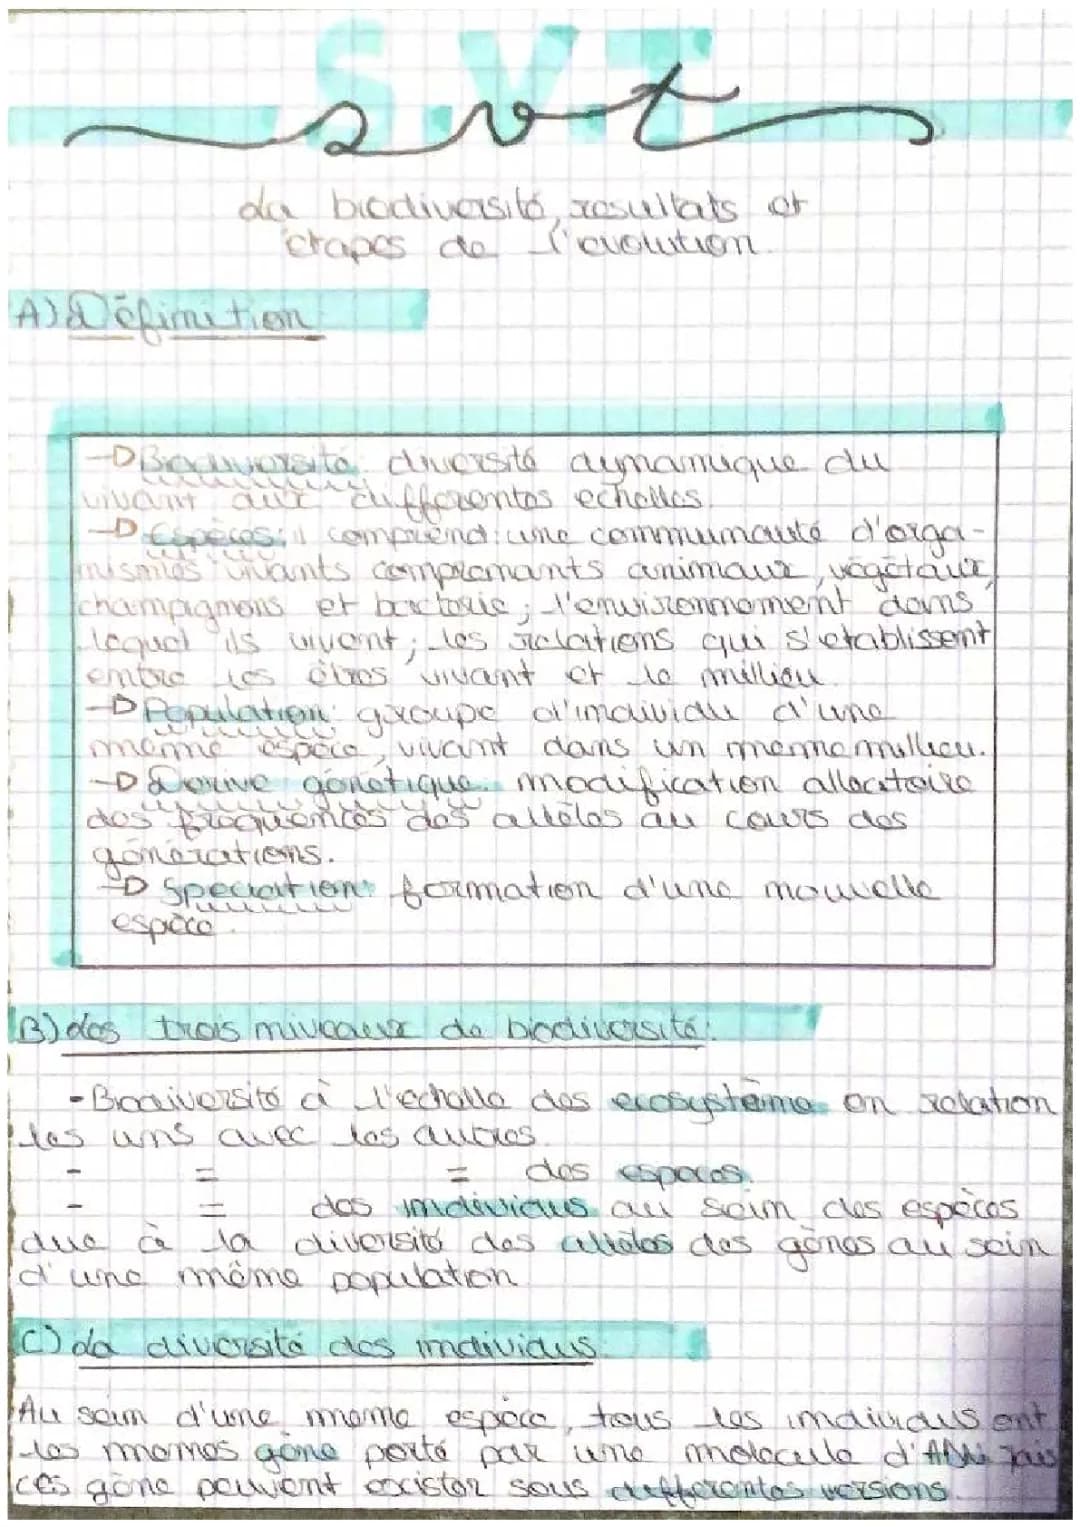 S.V.T
svt
La biodiversité, resultats et
étapes de l'evolution.
A) Définition
Biodiversité: diversité dynamique du
vivant aux differentes echelles.
Espèces: il comprend: une communauté d'orga-
nismes vivants comprenants animaux, végétaux,
champignons et bacterie; l'environnement dans
lequel ils vivent; les relations qui s'etablissent
entre les êtres vivant et le millieu.
Population: groupe d'individu d'une
même espèce, vivant dans un meme millieu.
Derive génétique: modification alleatoire
des frequences des allèles au cours des
générations.
Speciation: formation d'une nouvelle
espèce.
B) Les trois niveaux de biodiversité:
- Biodiversité à l'echelle des ecosystème en relation
les uns avec les autres.
- = = des especes.
- = des individus au sein des espèces
due à la diversité des allèles des gènes au sein
d'une même population
C) La diversité des individus:
Au sein d'une meme espèce, tous les individus ont
les memes gène porté par une molecule d'ADN
ces gène peuvent exister sous differentes versions.